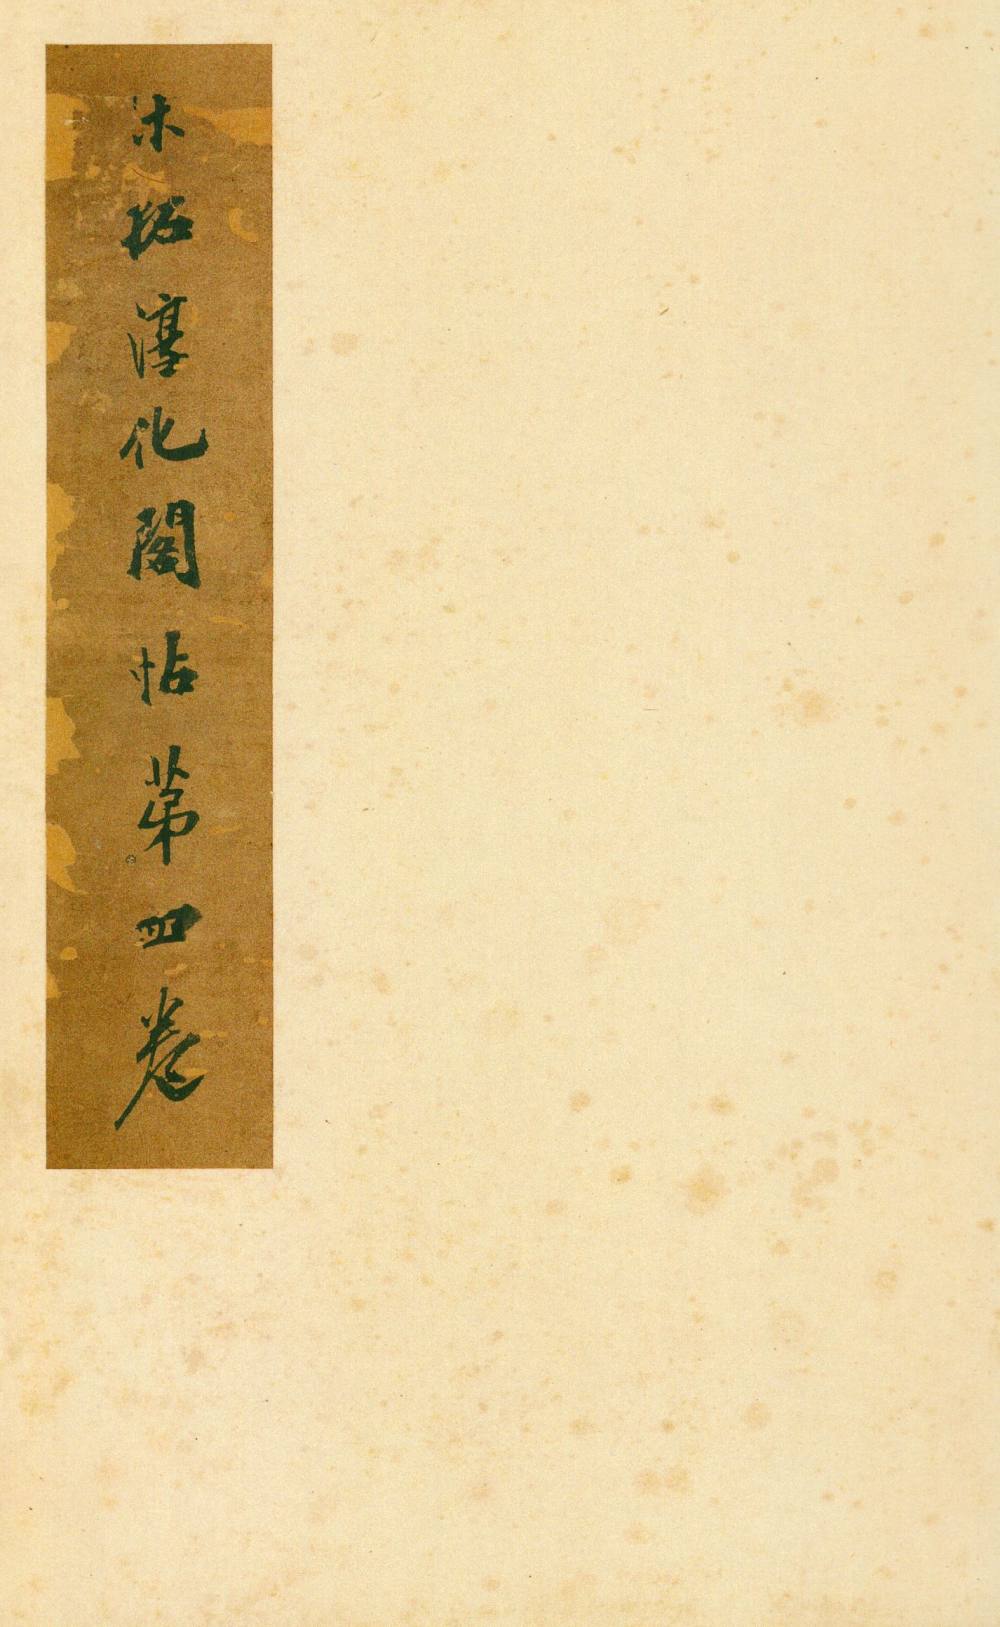 宋拓淳化閣帖第四卷